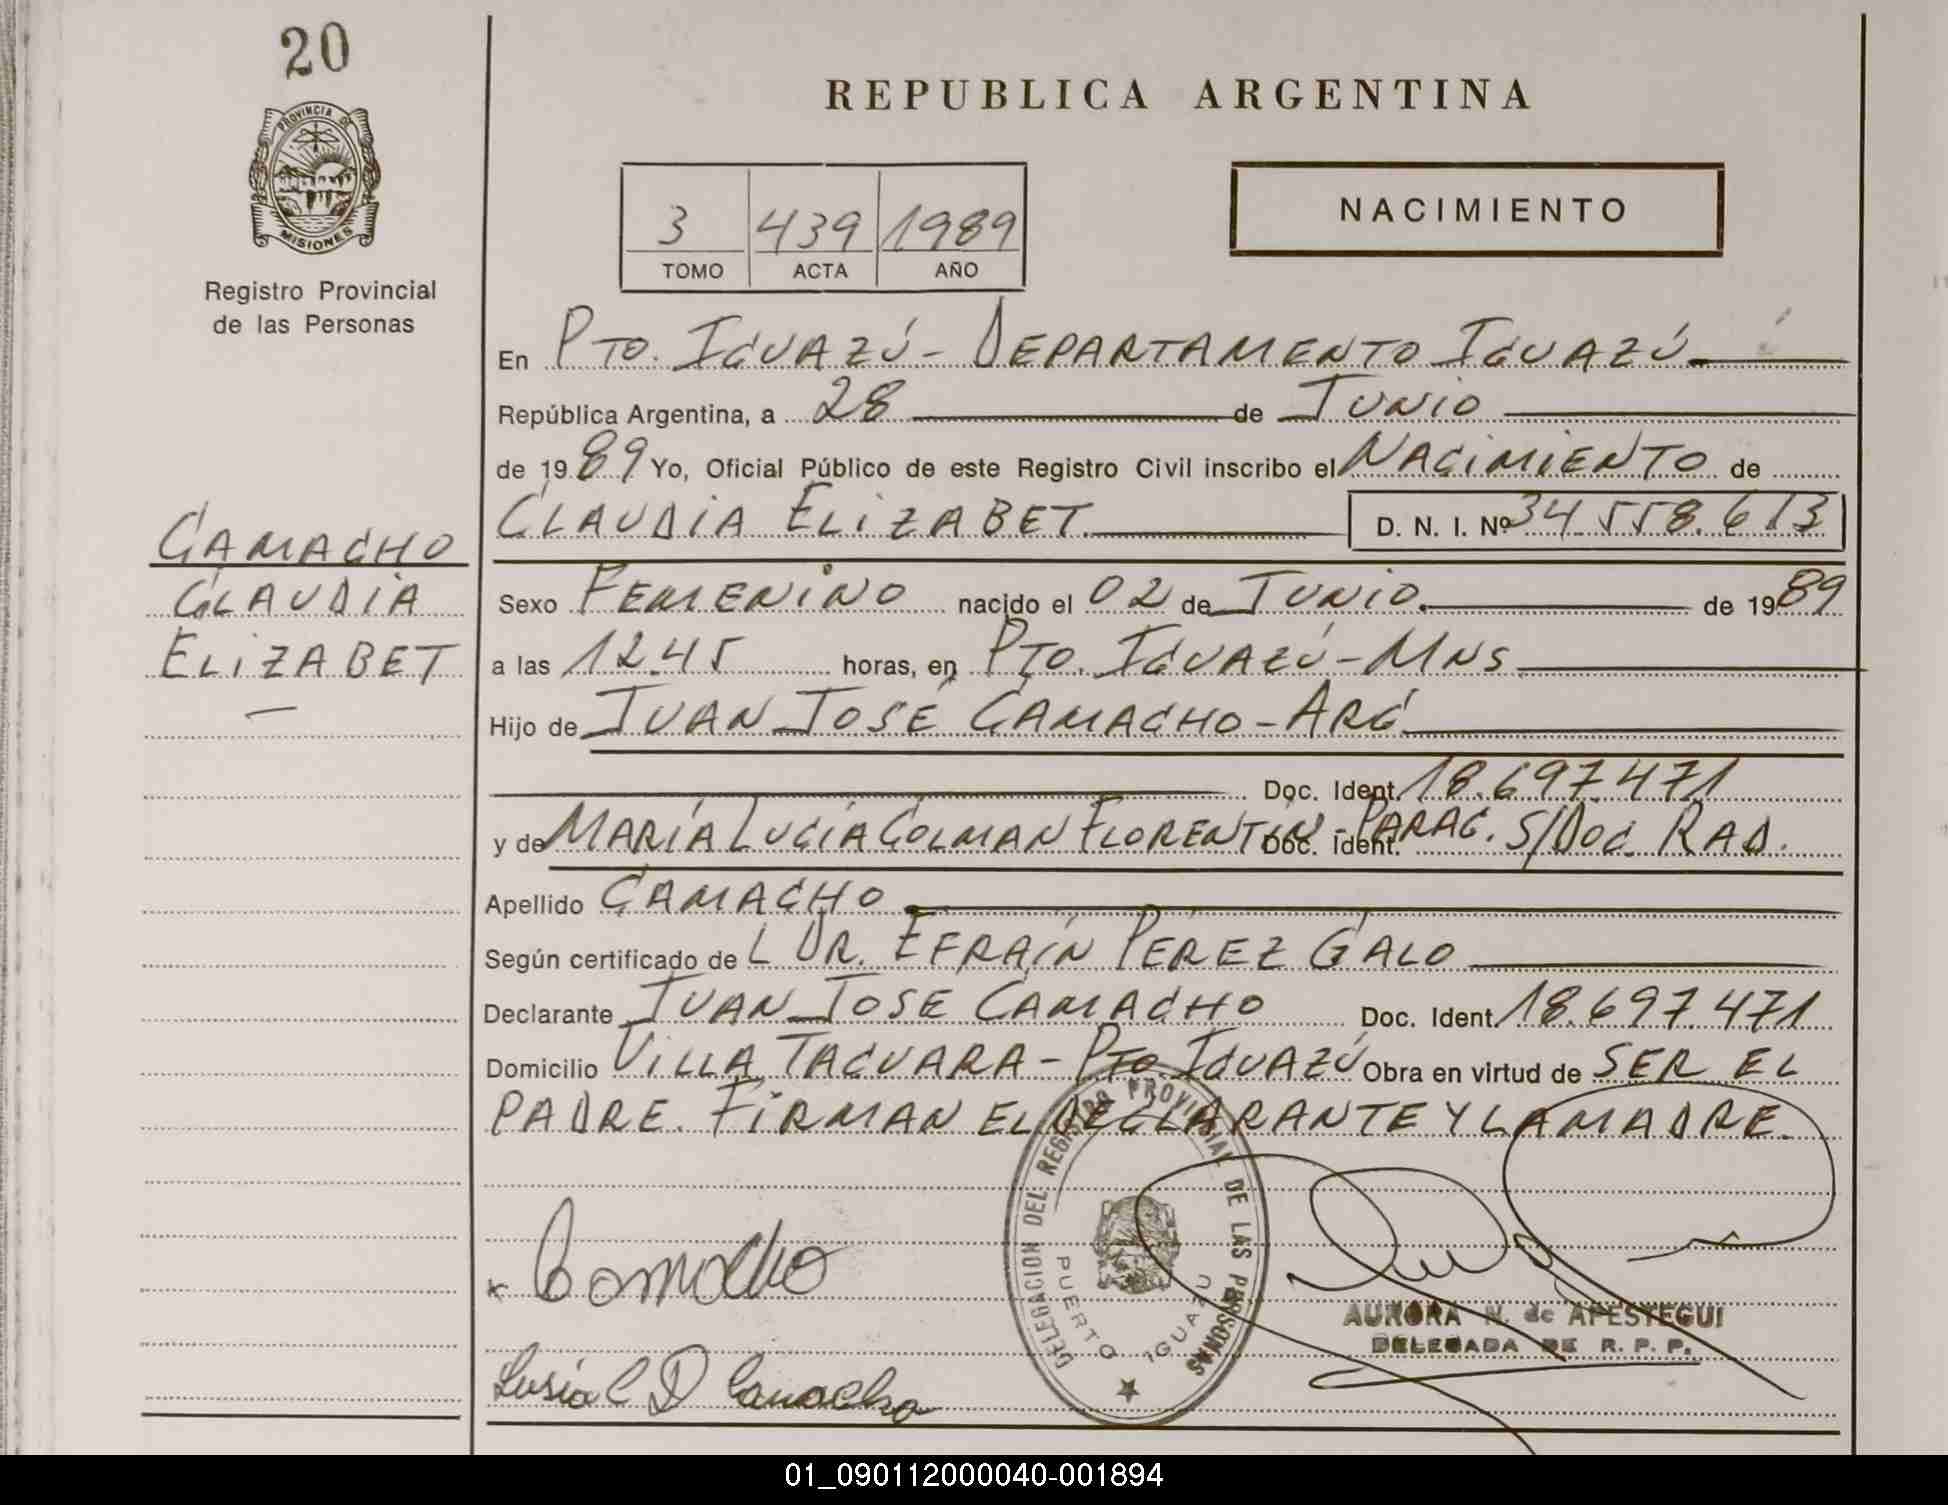 20
REPUBLICA ARGENTINA
PROVINCIA DE
MISIONES
Registro Provincial
de las Personas
3 439 1989
TOMO ACTA AÑO
NACIMIENTO
En PTO. IGUAZÚ - DEPARTAMENTO IGUAZÚ
República Argentina, a 28 de JUNIO
de 1989 Yo, Oficial Público de este Registro Civil inscribo el NACIMIENTO de
CLAUDIA ELIZABET D. N. I. Nº 34.558.613
CAMACHO
CLAUDIA
ELIZABET
Sexo FEMENINO nacido el 02 de JUNIO. de 1989
a las 12.45 horas, en PTO. IGUAZÚ - MNS
Hijo de JUAN JOSÉ CAMACHO - ARG
Doc. Ident. 18.697.471
y de MARÍA LUCÍA COLMAN FLORENTÍN - PARAG. Doc. Ident. S/DOC. RAD.
Apellido CAMACHO
Según certificado de L DR. EFRAÍN PÉREZ GALO
Declarante JUAN JOSE CAMACHO Doc. Ident. 18.697.471
Domicilio VILLA TACUARA - PTO. IGUAZÚ Obra en virtud de SER EL
PADRE. FIRMAN EL DECLARANTE Y LA MADRE.
DELEGACION DEL REGISTRO PROVINCIAL DE LAS PERSONAS
PUERTO IGUAZU
Camacho
AURORA N. de APESTEGUI
DELEGADA DE R. P. P.
Camacho
01_090112000040-001894